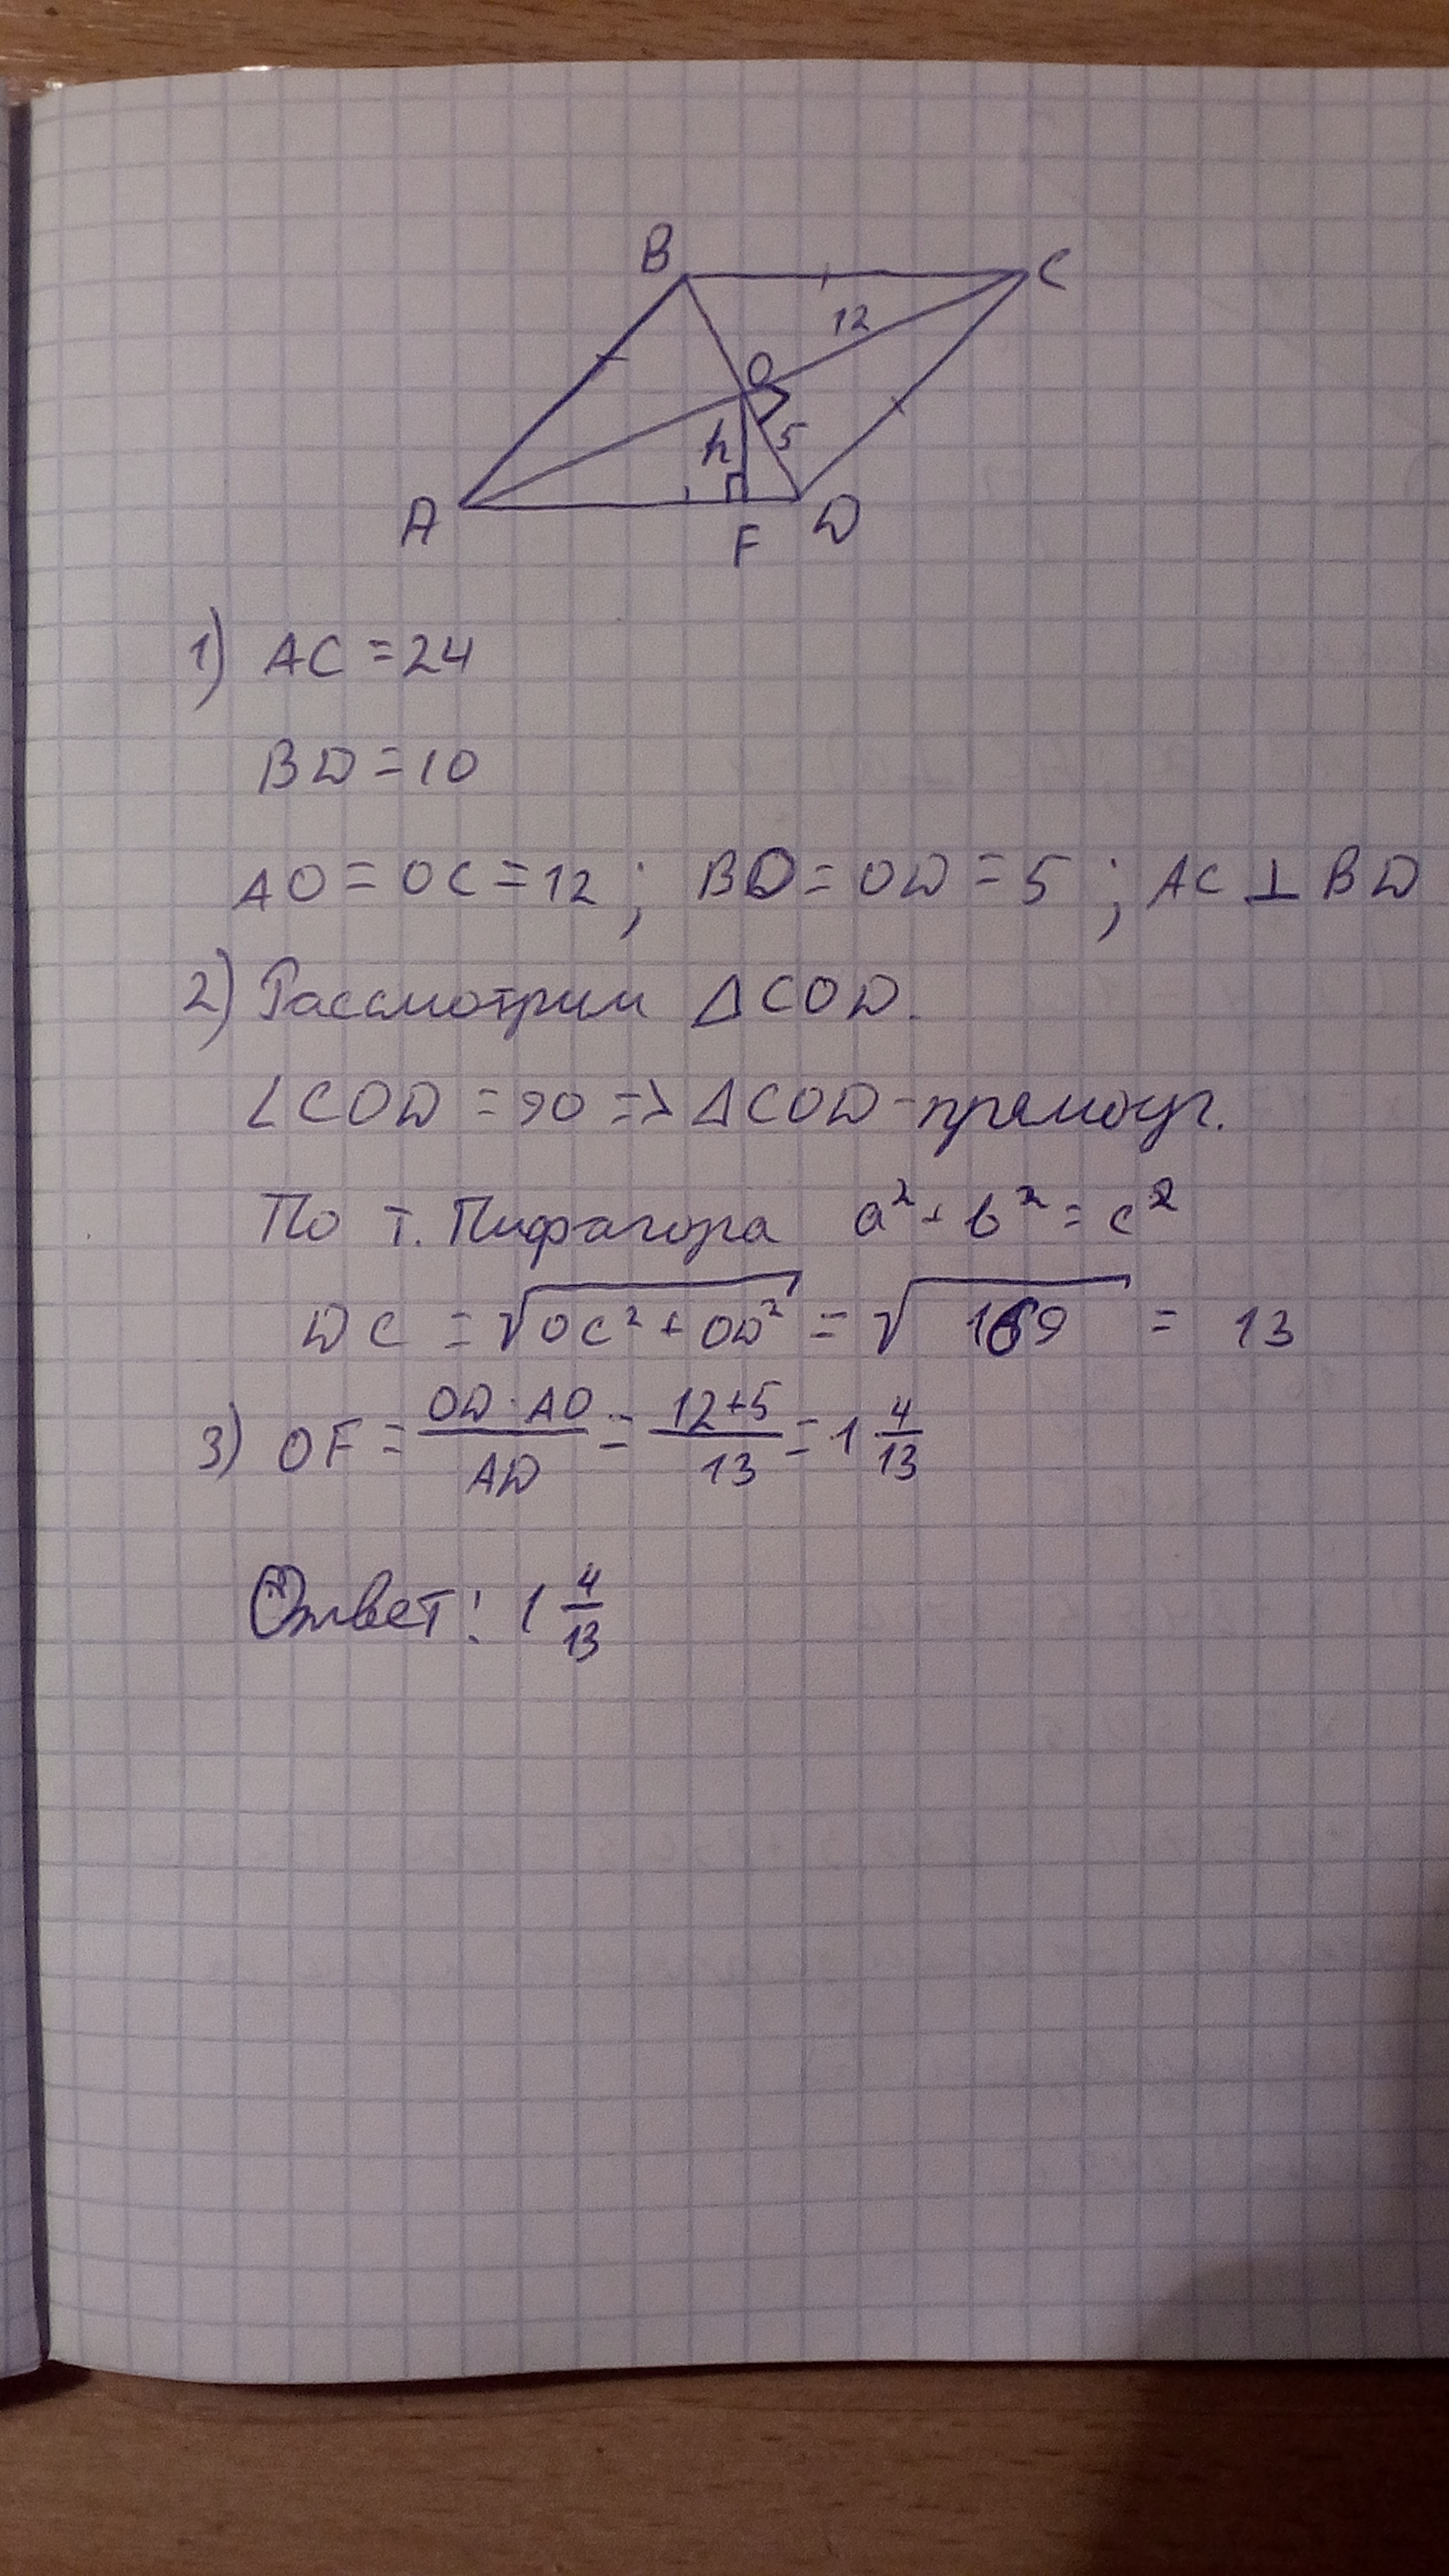 B
C
12
O
h
5
A
F
D
1) AC = 24
BD = 10
AO = OC = 12 ; BO = OD = 5 ; AC ⊥ BD
2) Рассмотрим △COD.
∠COD = 90 => △COD - прямоуг.
По т. Пифагора a² + b² = c²
DC = √(OC² + OD²) = √169 = 13
3) OF = (OD · AO)/AD = (12+5)/13 = 1 4/13
Ответ: 1 4/13